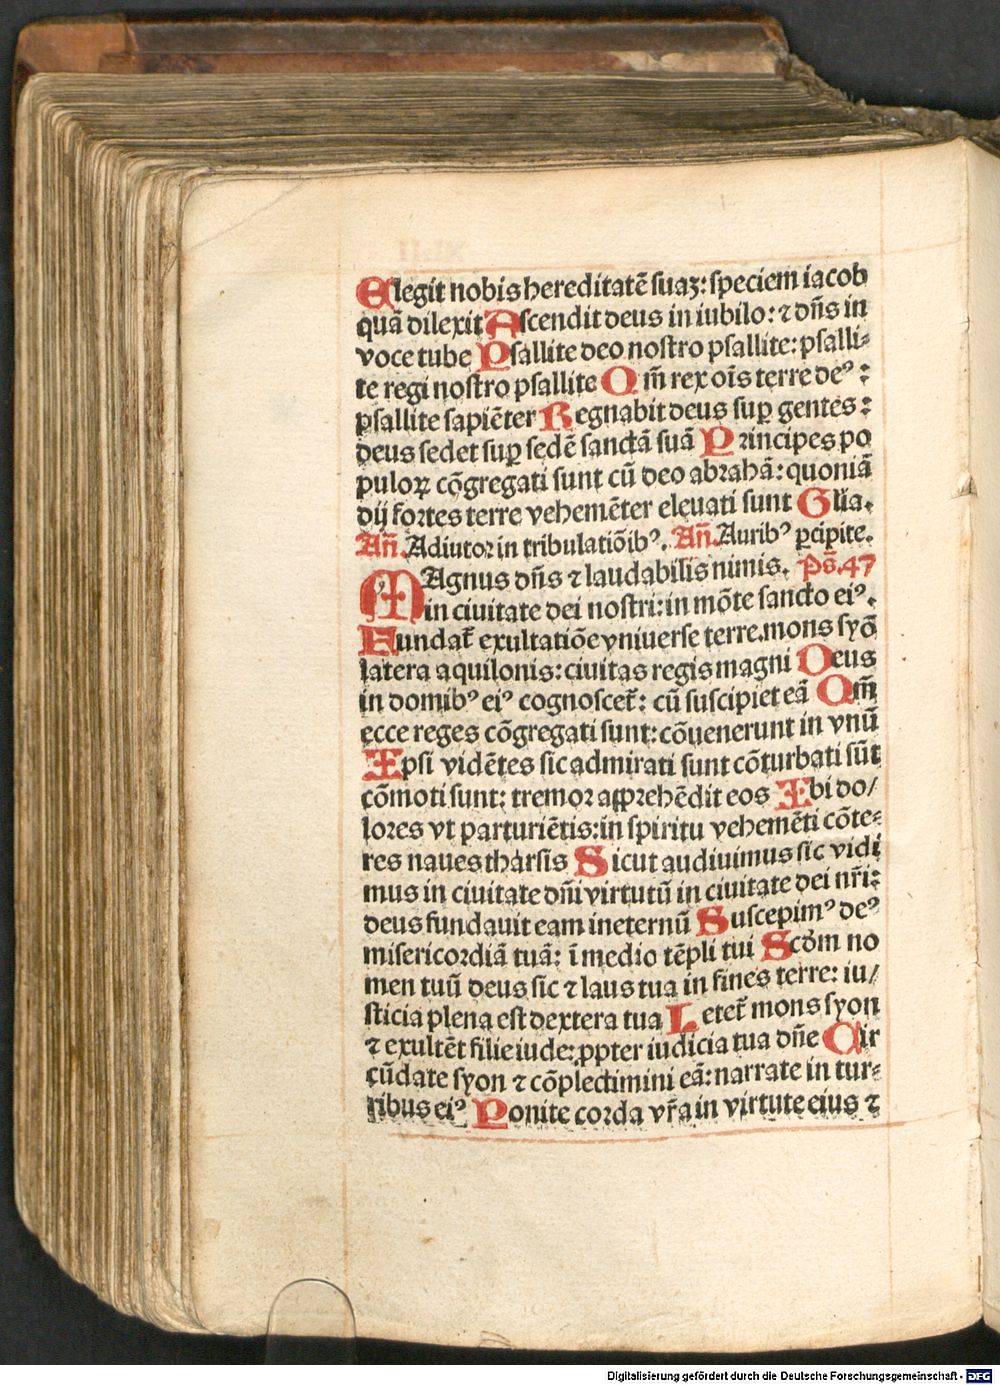 Elegit nobis hereditatē suaꝫ: speciem iacob
quā dilexit Ascendit deus in iubilo: ⁊ dn̄s in
voce tube Psallite deo nostro psallite: psalli⸗
te regi nostro psallite Qm̄ rex oīs terre deꝰ :
psallite sapiēter Regnabit deus suꝑ gentes :
deus sedet suꝑ sedē sanctā suā Principes po
puloꝝ cōgregati sunt cū deo abrahā: quoniā
dij fortes terre vehemēter eleuati sunt Glīa.
Añ. Adiutor in tribulatiōibꝰ. Añ. Auribꝰ ꝑcipite.
MAgnus dn̄s ⁊ laudabilis nimis. Ps̄. 47
in ciuitate dei nostri: in mōte sancto eiꝰ.
Fundat̄ exultatiōe vniuerse terre. mons syō
latera aquilonis: ciuitas regis magni Deus
in domibꝰ eiꝰ cognoscet̄: cū suscipiet eā Qm̄
ecce reges cōgregati sunt: cōuenerunt in vnū
Ipsi vidētes sic admirati sunt cōturbati sūt
cōmoti sunt: tremor apprehēdit eos Ibi do/
lores vt parturiētis: in spiritu vehemēti cōte⸗
res naues tharsis Sicut audiuimus sic vidi
mus in ciuitate dn̄i virtutū in ciuitate dei nr̄i:
deus fundauit eam in eternū Suscepimꝰ deꝰ
misericordiā tuā: ī medio tēpli tui Scd̄m no
men tuū deus sic ⁊ laus tua in fines terre: iu/
sticia plena est dextera tua Letet̄ mons syon
⁊ exultēt filie iude: ꝓpter iudicia tua dn̄e Cir
cūdate syon ⁊ cōplectimini eā: narrate in tur⸗
ribus eiꝰ Ponite corda vr̄a in virtute eius ⁊
Digitalisierung gefördert durch die Deutsche Forschungsgemeinschaft - DFG